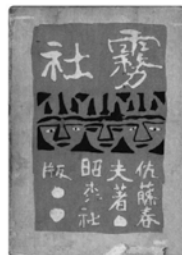 霧社
佐藤春
夫著
昭森社
版